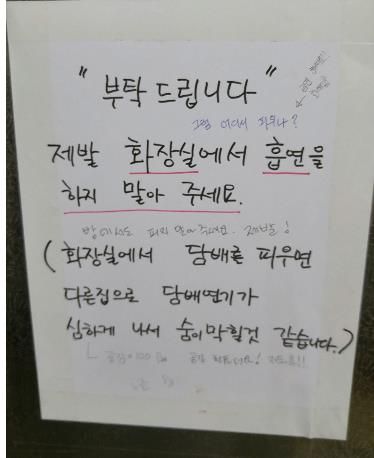 " 부탁 드립니다 "
그럼 어디서 피우나?
제발 화장실에서 흡연을
하지 말아 주세요.
밤에도 피지 말아주세요. 제발!
(화장실에서 담배를 피우면
다른집으로 담배연기가
심하게 나서 숨이막힐것 같습니다.)
공감x100